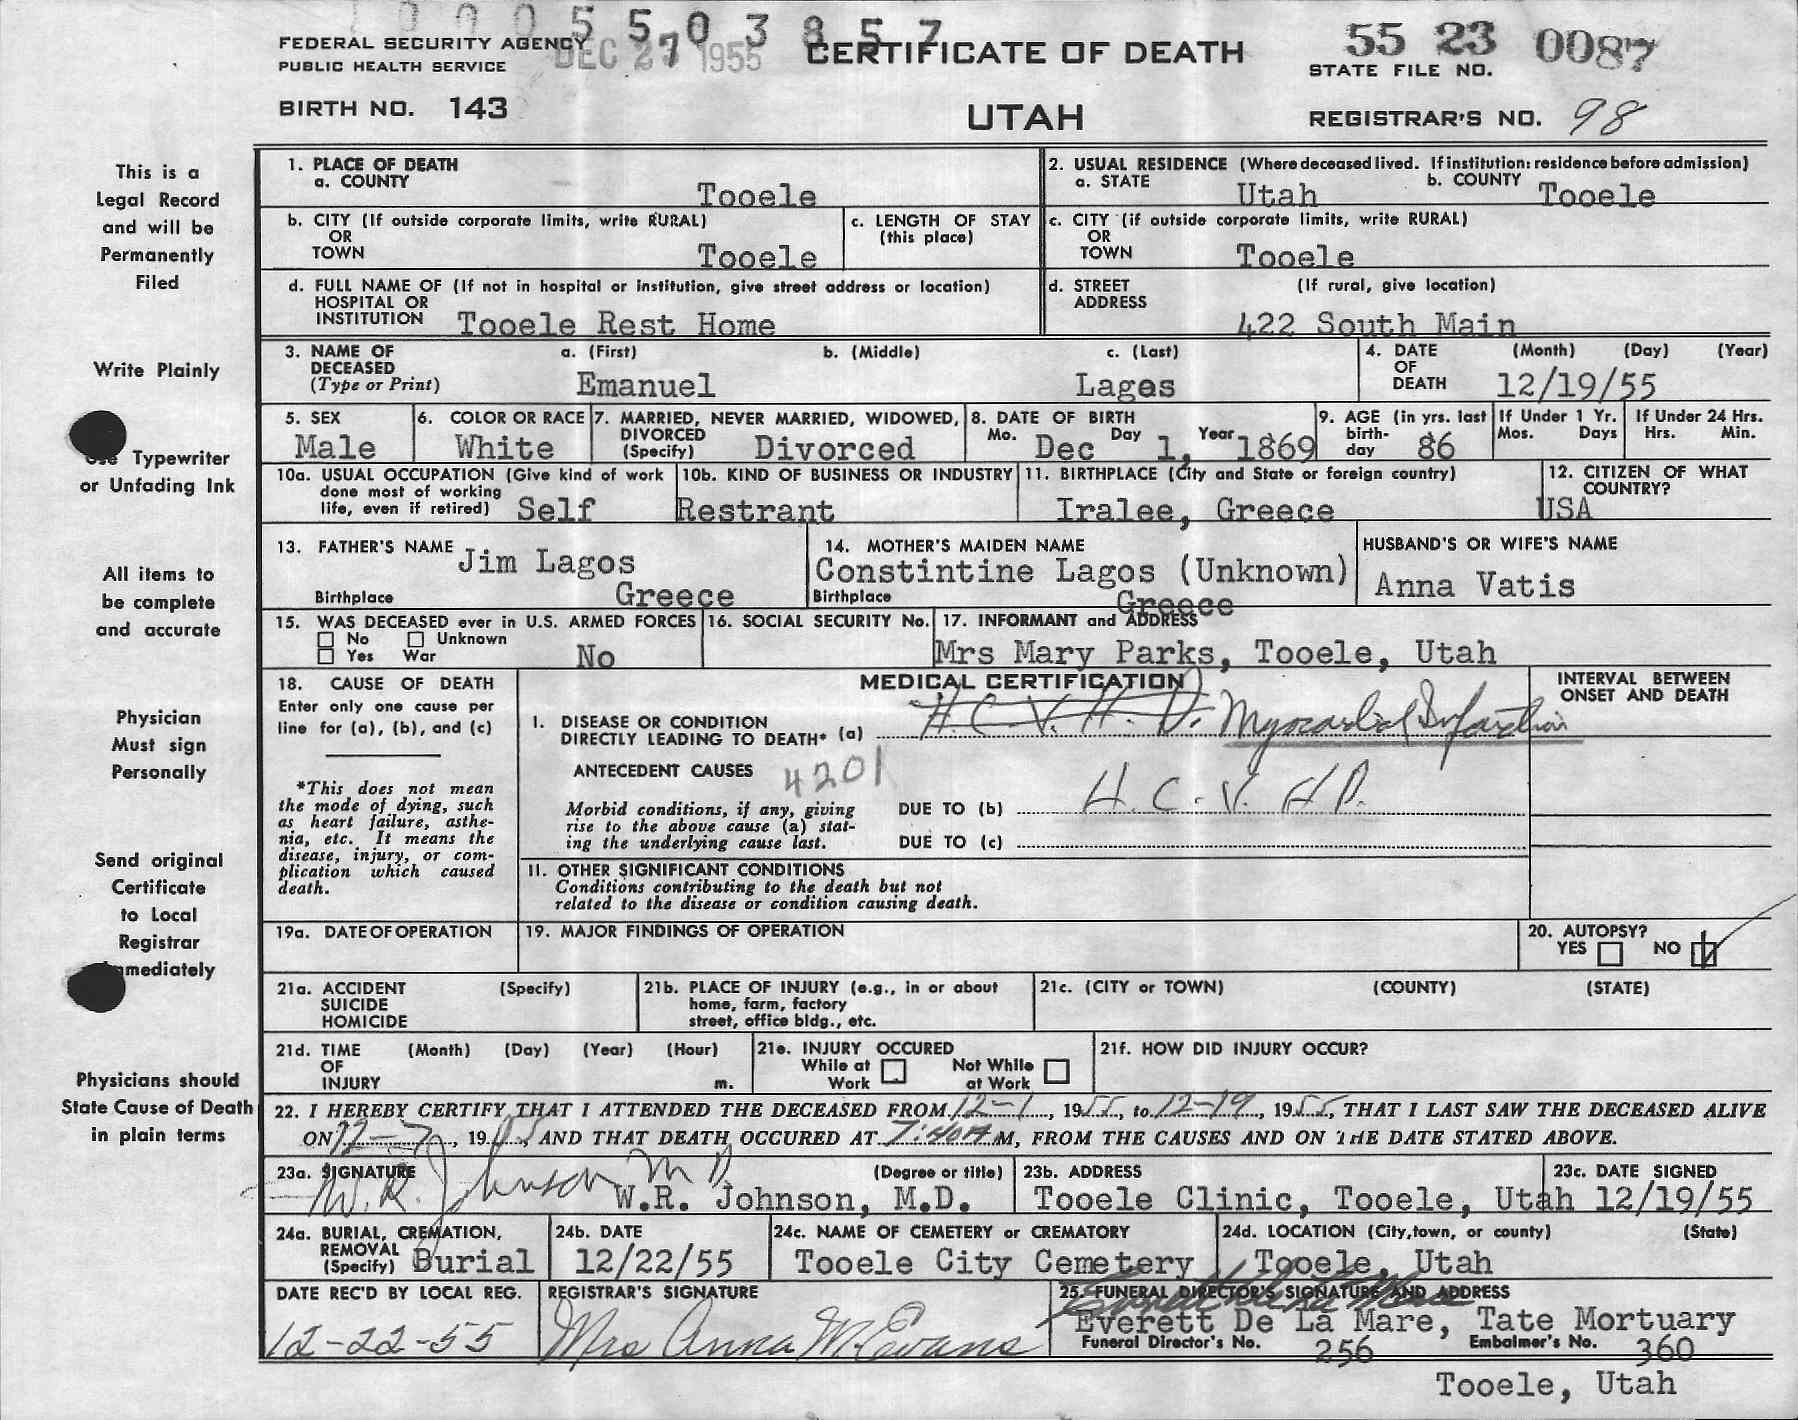 5 5 0 3 8 5 7
FEDERAL SECURITY AGENCY
PUBLIC HEALTH SERVICE
DEC 27 1955
CERTIFICATE OF DEATH
55 23 0087
STATE FILE NO.
BIRTH NO. 143
UTAH
REGISTRAR'S NO. 98
This is a
Legal Record
and will be
Permanently
Filed
Write Plainly
Use Typewriter
or Unfading Ink
All items to
be complete
and accurate
Physician
Must sign
Personally
Send original
Certificate
to Local
Registrar
Immediately
Physicians should
State Cause of Death
in plain terms
1. PLACE OF DEATH
a. COUNTY
Tooele
2. USUAL RESIDENCE (Where deceased lived. If institution: residence before admission)
a. STATE Utah b. COUNTY Tooele
b. CITY (If outside corporate limits, write RURAL)
OR
TOWN Tooele
c. LENGTH OF STAY
(this place)
c. CITY (if outside corporate limits, write RURAL)
OR
TOWN Tooele
d. FULL NAME OF (If not in hospital or institution, give street address or location)
HOSPITAL OR
INSTITUTION Tooele Rest Home
d. STREET (If rural, give location)
ADDRESS
422 South Main
3. NAME OF a. (First) b. (Middle) c. (Last)
DECEASED
(Type or Print) Emanuel Lagos
4. DATE (Month) (Day) (Year)
OF
DEATH 12/19/55
5. SEX
Male
6. COLOR OR RACE
White
7. MARRIED, NEVER MARRIED, WIDOWED,
DIVORCED
(Specify) Divorced
8. DATE OF BIRTH
Mo. Dec Day 1, Year 1869
9. AGE (in yrs. last
birth-
day 86
If Under 1 Yr.
Mos. Days
If Under 24 Hrs.
Hrs. Min.
10a. USUAL OCCUPATION (Give kind of work
done most of working
life, even if retired) Self
10b. KIND OF BUSINESS OR INDUSTRY
Restrant
11. BIRTHPLACE (City and State or foreign country)
Iralee, Greece
12. CITIZEN OF WHAT
COUNTRY?
USA
13. FATHER'S NAME Jim Lagos
Birthplace Greece
14. MOTHER'S MAIDEN NAME
Constintine Lagos (Unknown)
Birthplace Greece
HUSBAND'S OR WIFE'S NAME
Anna Vatis
15. WAS DECEASED ever in U.S. ARMED FORCES
No Unknown
Yes War No
16. SOCIAL SECURITY No.
17. INFORMANT and ADDRESS
Mrs Mary Parks, Tooele, Utah
18. CAUSE OF DEATH
Enter only one cause per
line for (a), (b), and (c)
*This does not mean
the mode of dying, such
as heart failure, asthe-
nia, etc. It means the
disease, injury, or com-
plication which caused
death.
MEDICAL CERTIFICATION
INTERVAL BETWEEN
ONSET AND DEATH
I. DISEASE OR CONDITION
DIRECTLY LEADING TO DEATH* (a) H.C.V.H.D. Myocardial Infarction
ANTECEDENT CAUSES 4201
Morbid conditions, if any, giving
rise to the above cause (a) stat-
ing the underlying cause last.
DUE TO (b) H.C.V.H.D.
DUE TO (c)
II. OTHER SIGNIFICANT CONDITIONS
Conditions contributing to the death but not
related to the disease or condition causing death.
19a. DATE OF OPERATION
19. MAJOR FINDINGS OF OPERATION
20. AUTOPSY?
YES NO
21a. ACCIDENT (Specify)
SUICIDE
HOMICIDE
21b. PLACE OF INJURY (e.g., in or about
home, farm, factory
street, office bldg., etc.
21c. (CITY or TOWN) (COUNTY) (STATE)
21d. TIME (Month) (Day) (Year) (Hour)
OF
INJURY m.
21e. INJURY OCCURED
While at Not While
Work at Work
21f. HOW DID INJURY OCCUR?
22. I HEREBY CERTIFY THAT I ATTENDED THE DECEASED FROM 12-1, 1955, to 12-19, 1955, THAT I LAST SAW THE DECEASED ALIVE
ON 12-7, 1955, AND THAT DEATH OCCURED AT 7:40A M, FROM THE CAUSES AND ON THE DATE STATED ABOVE.
23a. SIGNATURE (Degree or title)
W.R. Johnson M D W.R. Johnson, M.D.
23b. ADDRESS
Tooele Clinic, Tooele, Utah
23c. DATE SIGNED
12/19/55
24a. BURIAL, CREMATION,
REMOVAL
(Specify) Burial
24b. DATE
12/22/55
24c. NAME OF CEMETERY or CREMATORY
Tooele City Cemetery
24d. LOCATION (City, town, or county) (State)
Tooele, Utah
DATE REC'D BY LOCAL REG.
12-22-55
REGISTRAR'S SIGNATURE
Mrs Anna M. Evans
25. FUNERAL DIRECTOR'S SIGNATURE AND ADDRESS
Everett De La Mare, Tate Mortuary
Funeral Director's No. 256 Embalmer's No. 360
Tooele, Utah